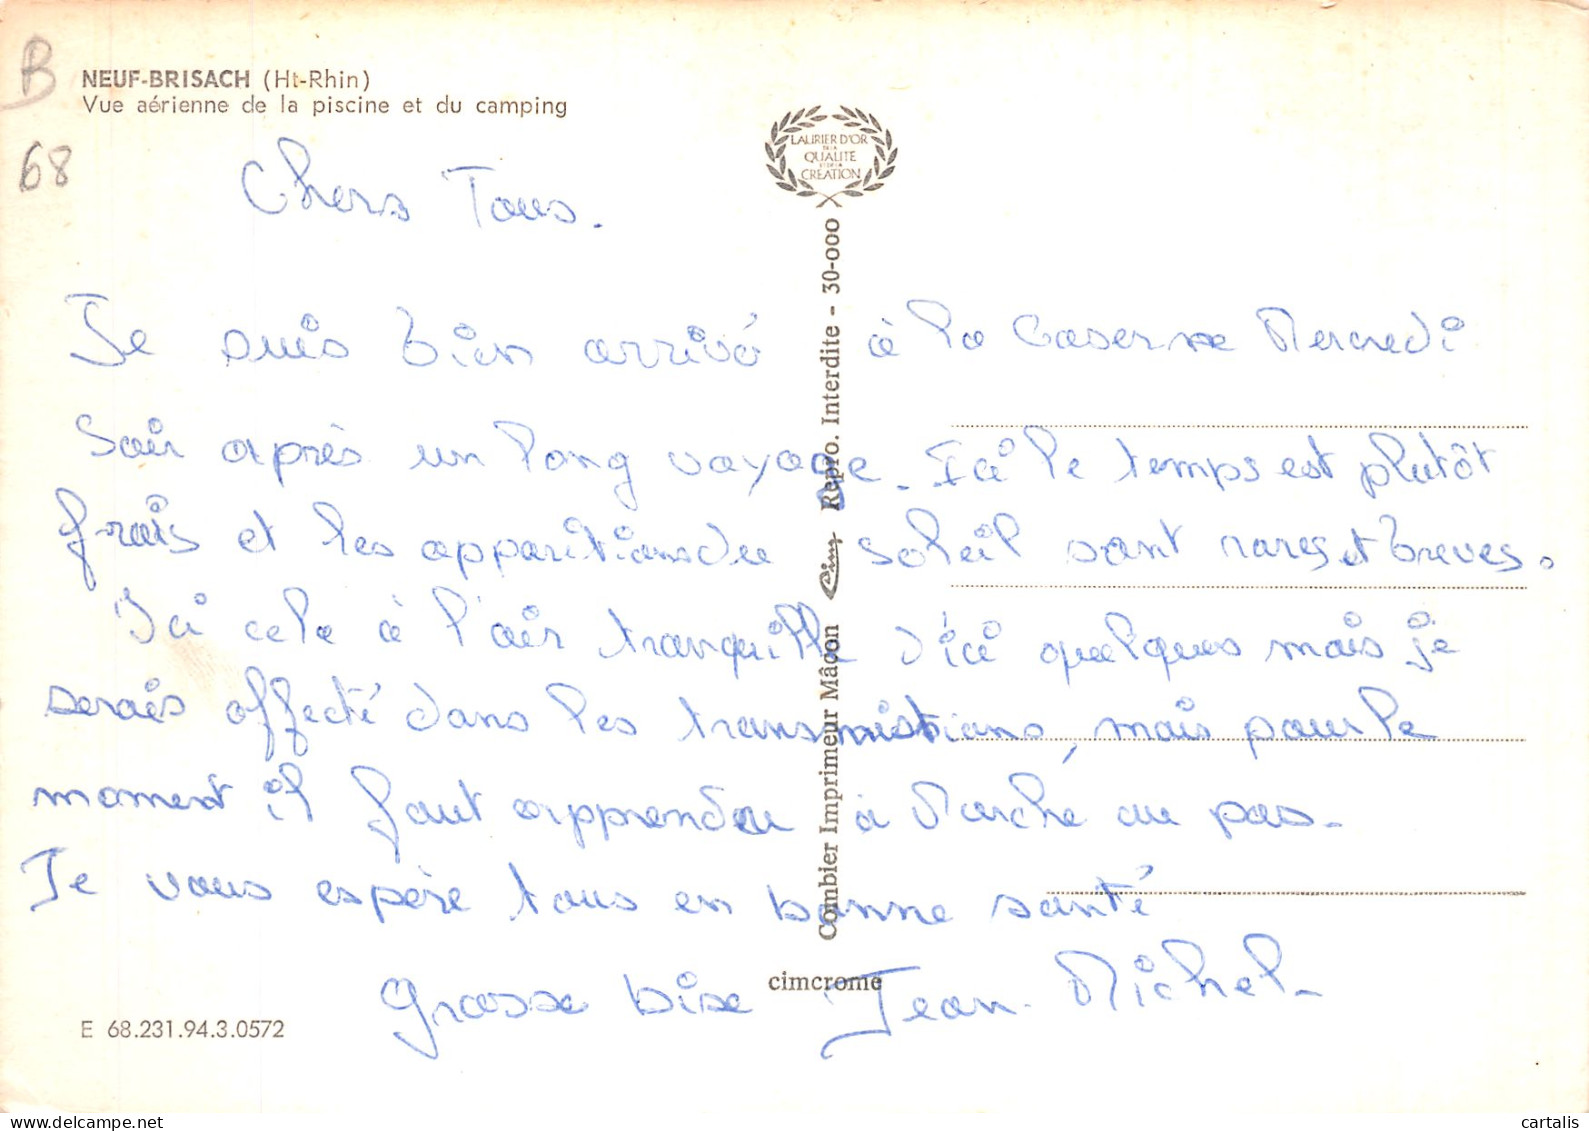 B
68
NEUF-BRISACH (Ht-Rhin)
Vue aérienne de la piscine et du camping
LAURIER D'OR
DE LA
QUALITE
ET DE LA
CREATION
Chers Tous.
Je suis bien arrivé à la Caserne Mercredi
Soir après un long voyage. Ici le temps est plutôt
frais et les apparitions du soleil sont rares et breves.
Ici cela à l'air tranquille d'ici quelques mais je
serais affecté dans les transmistions, mais pour le
moment il faut apprendre à Marché au pas.
Je vous espère tous en bonne santé
Grosse bise Jean-Michel.
Combier Imprimeur Mâcon Cim Repro. Interdite - 30-000
cimcrome
E 68.231.94.3.0572
delcampe.net
cartalis